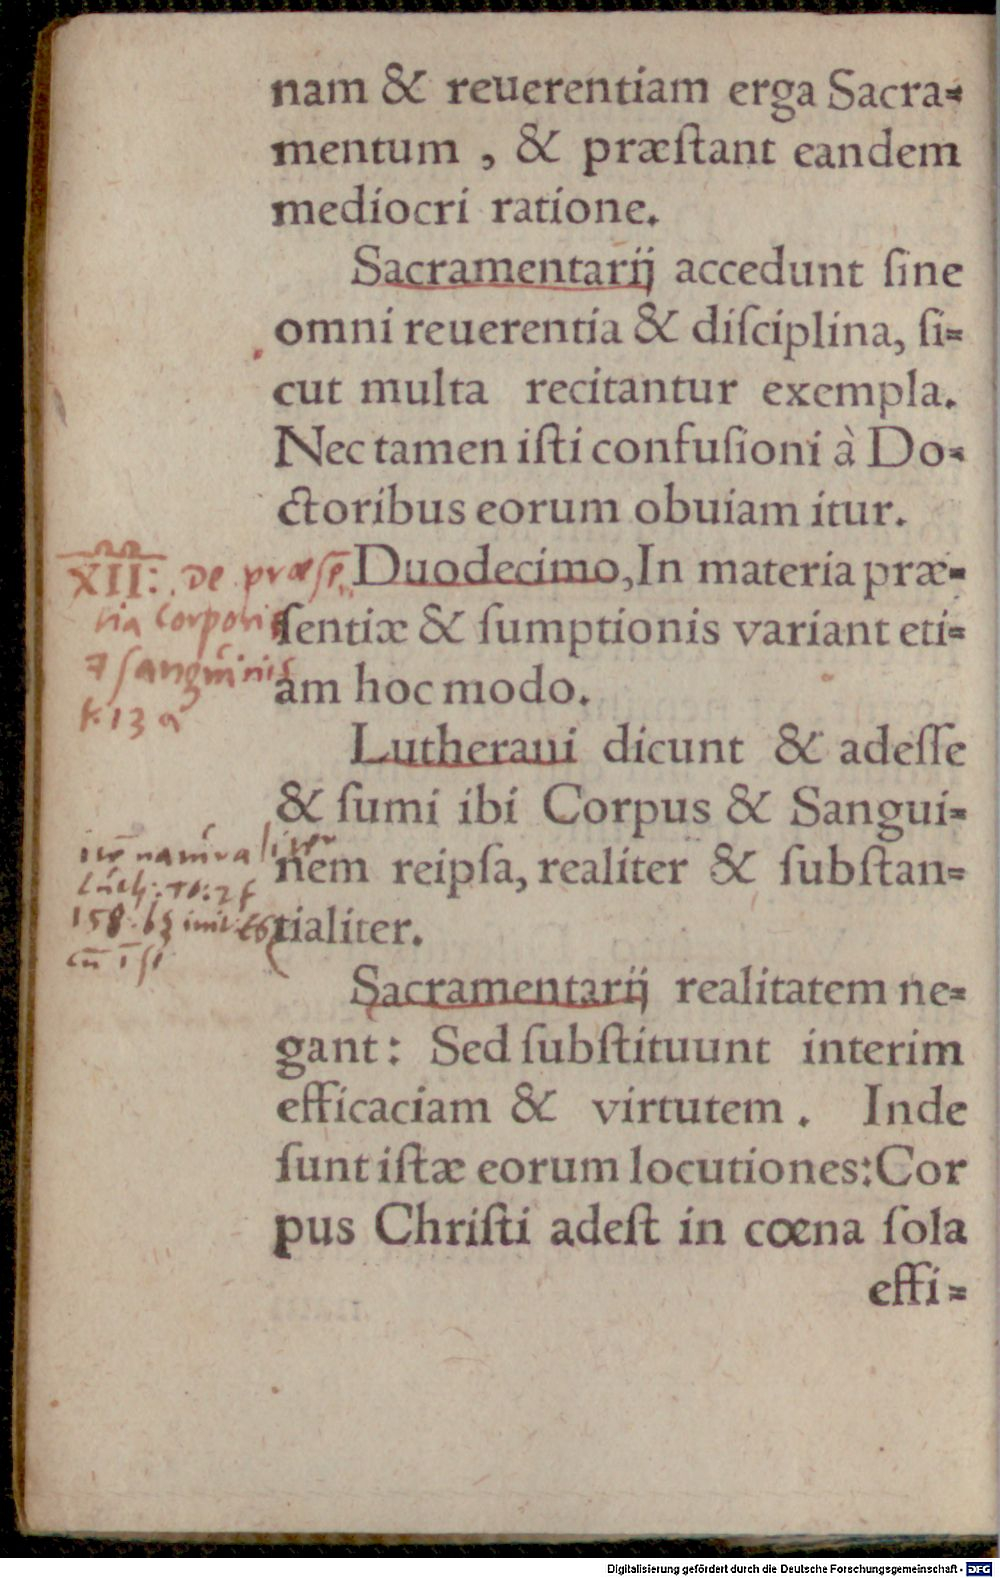 nam & reuerentiam erga Sacra=
mentum , & præſtant eandem
mediocri ratione.
Sacramentarij accedunt ſine
omni reuerentia & diſciplina, ſi=
cut multa recitantur exempla.
Nec tamen iſti confuſioni à Do=
ctoribus eorum obuiam itur.
XII: De præſē
tia Corporis
ſanguinis
13 a
Duodecimo, In materia præ=
ſentiæ & ſumptionis variant eti=
am hoc modo.
Lutherani dicunt & adeſſe
& ſumi ibi Corpus & Sangui=
nem reipſa, realiter & ſubſtan=
tialiter.
Sacramentarij realitatem ne=
gant: Sed ſubſtituunt interim
efficaciam & virtutem. Inde
ſunt iſtæ eorum locutiones: Cor
pus Chriſti adeſt in cœna ſola
effi=
Digitalisierung gefördert durch die Deutsche Forschungsgemeinschaft - DFG